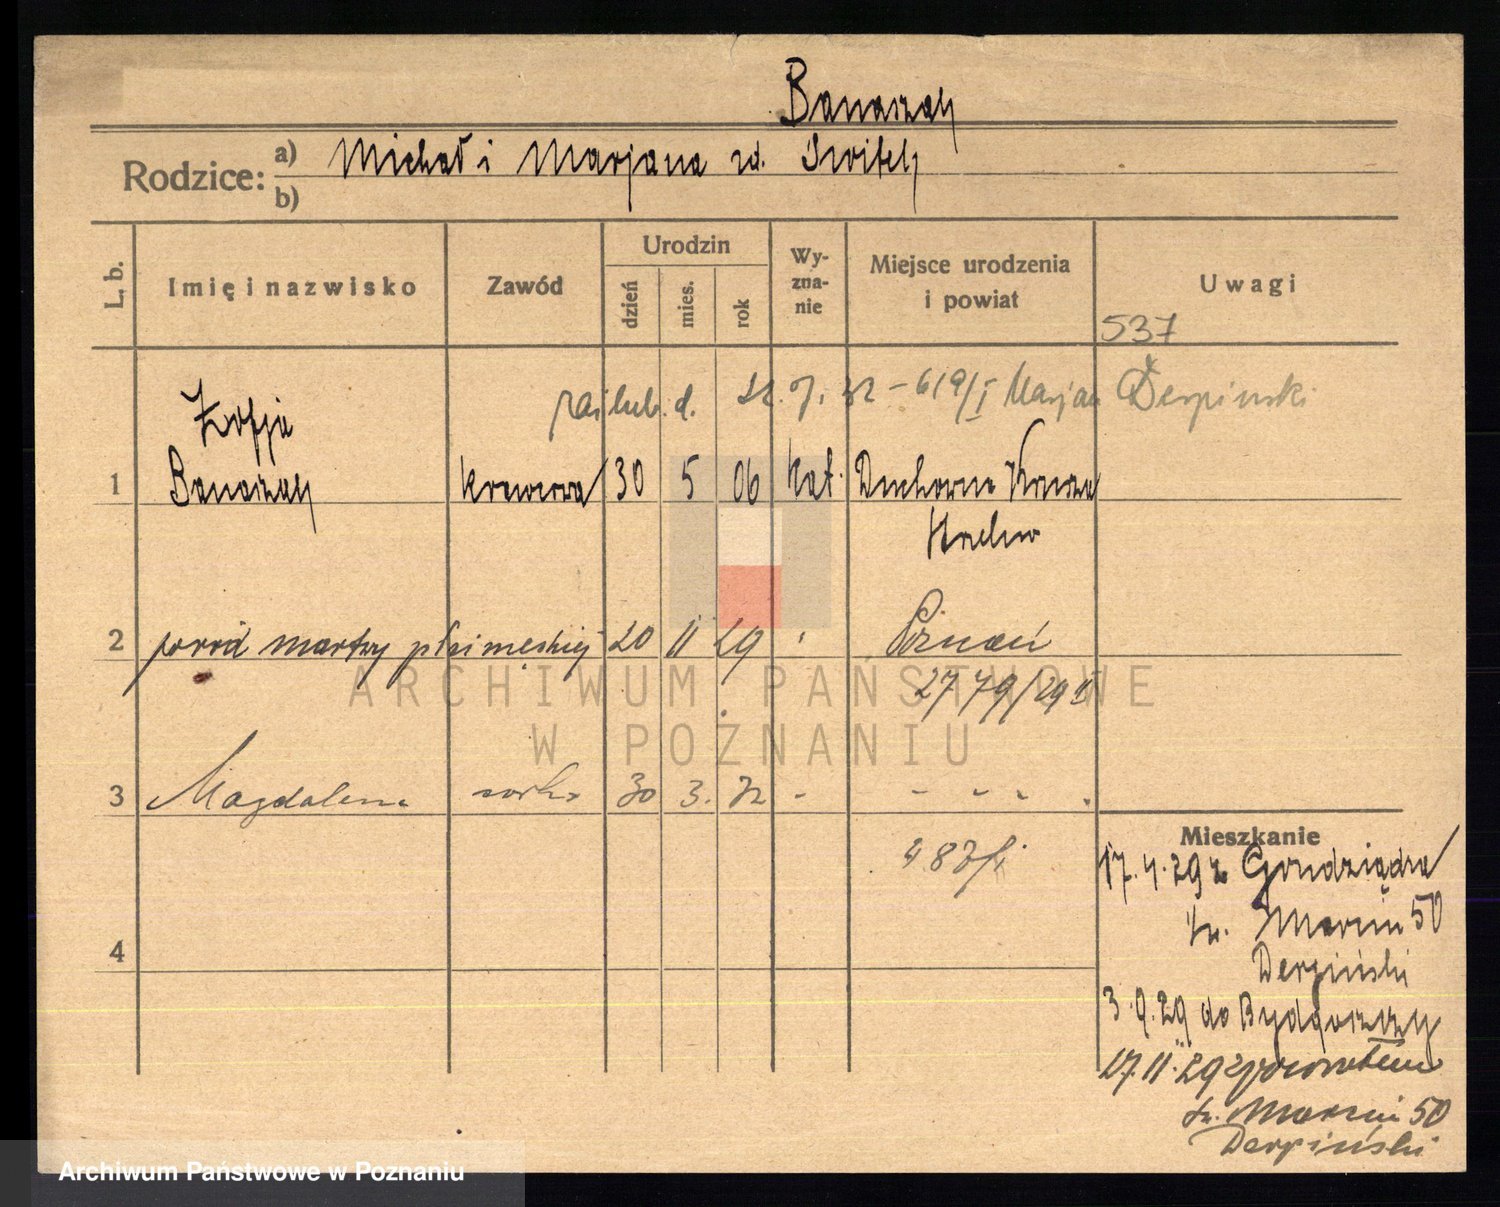 Banaszak
Rodzice: a) Michał i Marjana zd. Switek
b)
L. b.
Imię i nazwisko
Zawód
Urodzin
dzień
mies.
rok
Wy-
zna-
nie
Miejsce urodzenia
i powiat
Uwagi
537
zaślub. d. 12. 7. 32 - 619/I Marjan Derpinski
Zofja
1 Banaszak krawcowa 30 5 06 kat. Duchowna
2 poród martwy płci męskiej 20 11 29 Poznań
2779/29
3 Magdalena córka 30 3. 32 - - - - -
483/
4
Mieszkanie
17.4.29 z Grudziądza
św. Marcin 50
Derpiński
3.9.29 do Bydgoszczy
27.11.29 z powrotem
św. Marcin 50
Derpiński
ARCHIWUM PAŃSTWOWE
W POZNANIU
Archiwum Państwowe w Poznaniu